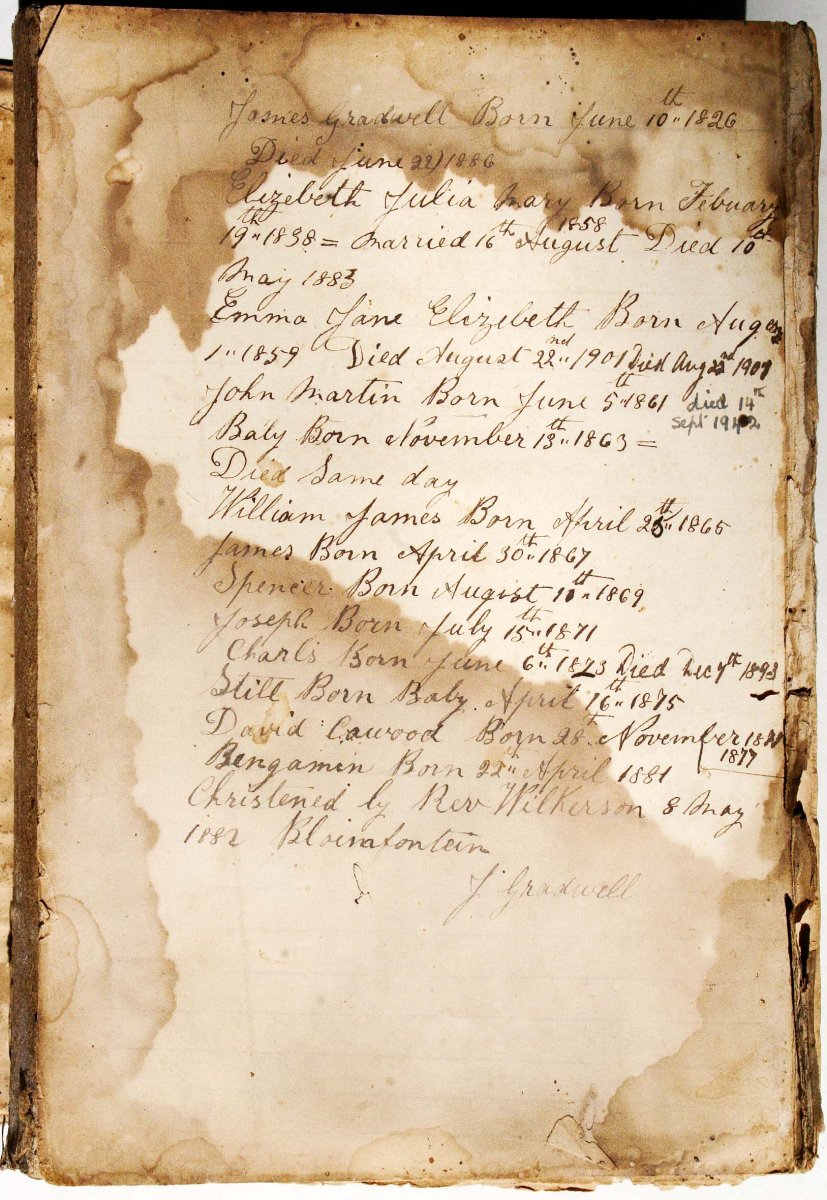 James Gradwell Born June 10th 1826
Died June 22) 1886
Elizebeth Julia Mary Born Febuary
19th 1838 = Married 16th August 1858 Died 10th
May 1883
Emma Jane Elizebeth Born August
1" 1859 Died August 22nd" 1901 Died Aug 22nd 1901
John Martin Born June 5th" 1861 died 14th
Sept 1942
Baby Born November 13th" 1863 =
Died Same day
William James Born April 25th" 1865
James Born April 30th" 1867
Spencer Born August 10th" 1869
Joseph Born July 15th" 1871
Charls Born June 6th" 1873 Died Dec 7th 1893
Still Born Baby April 16th" 1875
David Cawood Born 28th November
1877
Bengamin Born 22nd April 1881
Christened by Rev Wilkerson 8 May
1882 Bloimfontein
J Gradwell